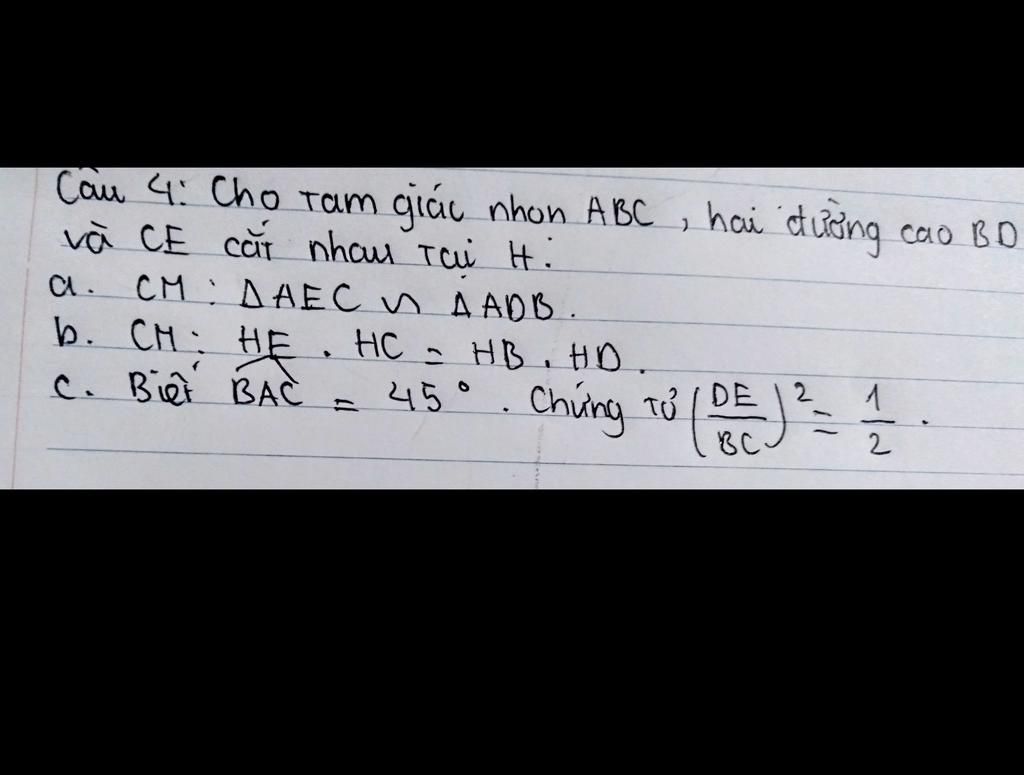 Câu 4: Cho tam giác nhọn ABC, hai đường cao BD
và CE cắt nhau tại H.
a. CM: ΔAEC ∽ ΔADB.
b. CM: HE . HC = HB . HD.
c. Biết \widehat{BAC} = 45°. Chứng tỏ (DE/BC)² = 1/2.